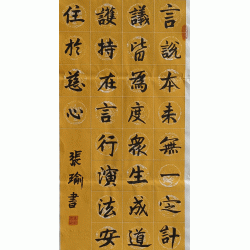 言說本来無一定計
議皆為度眾生成道
護持在言行演法安
住於慈心
張瑜書